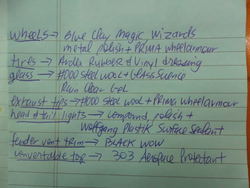 wheels → Blue Clay Magic, Wizards
metal polish + PRIMA wheel armour
tires → Rubber & Vinyl dressing
glass → #000 steel wool + Glass Science
Rain Clear Gel
exhaust tips → #000 steel wool + PRIMA wheel armour
head & tail lights → Compound, polish +
Wolfgang Plastik Surface Sealant
fender vent trim → BLACK WOW
convertable top → 303 Aerospace Protectant